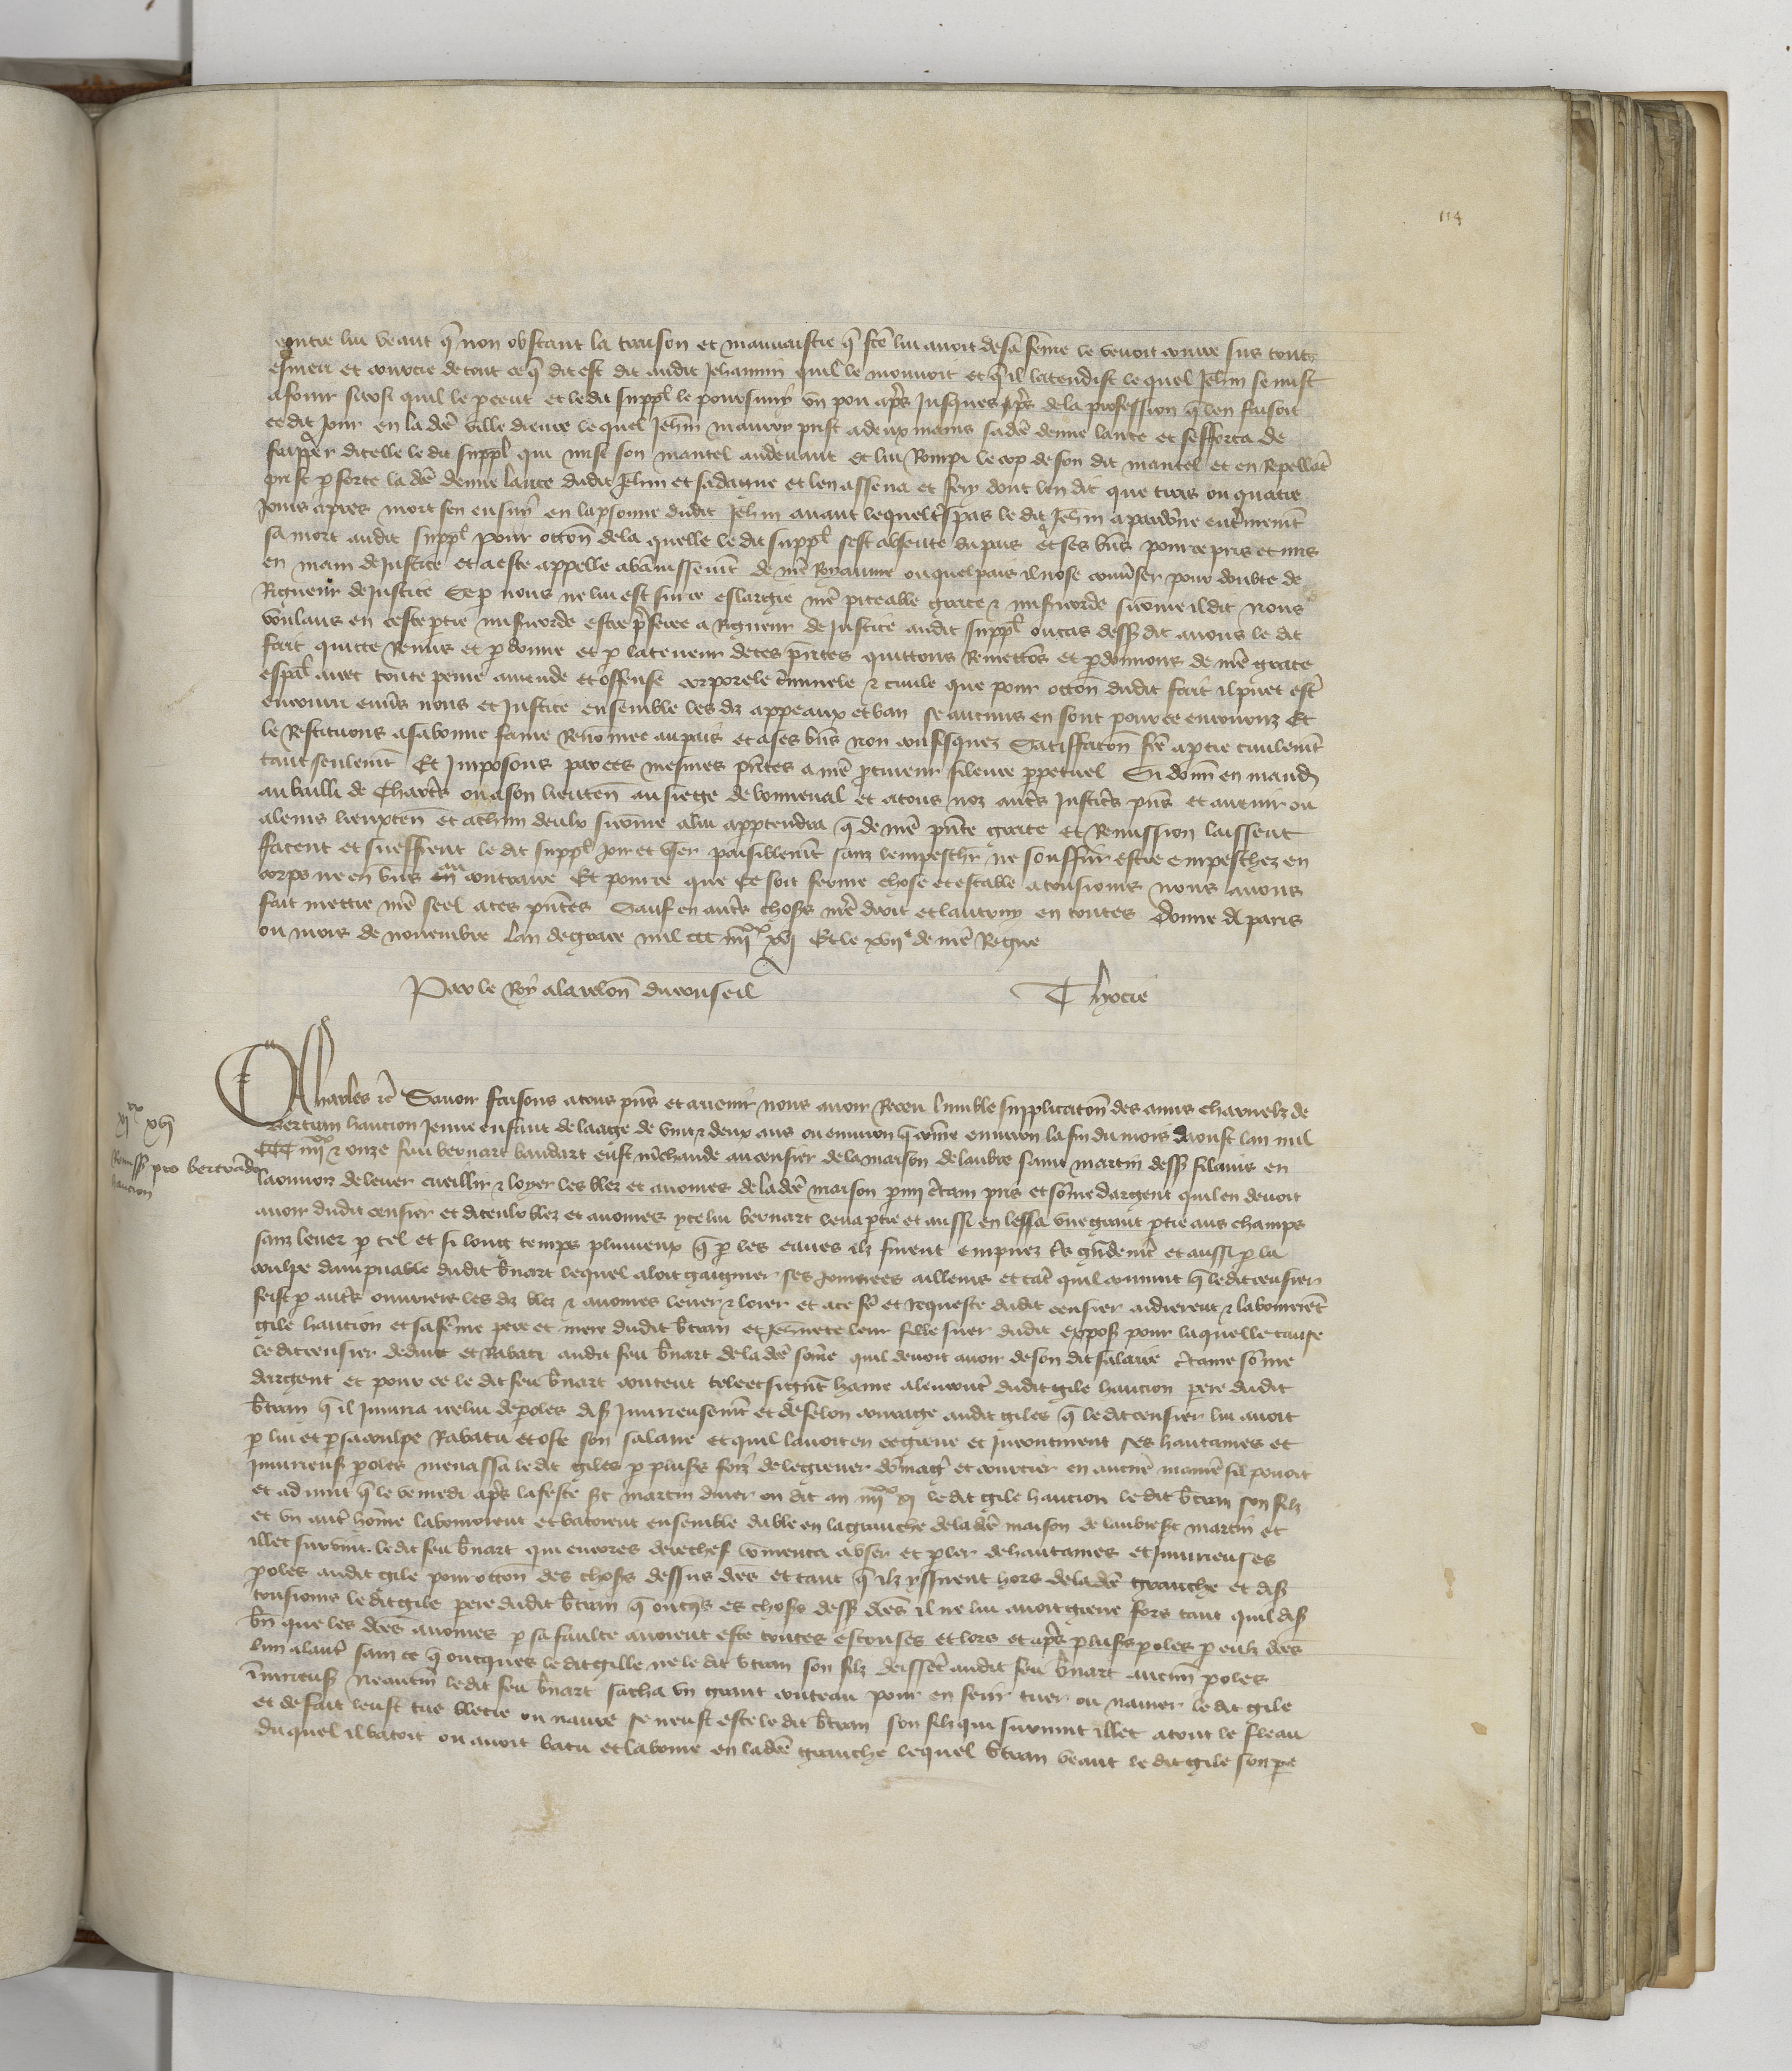 114
contre lui veant q̃ non obstant la traison et mauvaistie q̃ fcẽ lui avoit de sa fẽme le venoit courre sus tout
esmeu et courcie de tout ce q̃ dit est dit audit Jehannin quil le mouvoit et q̃ il latendist le quel Jeh̃in se mist
a fouir si tost quil le perceut et le dit suppl̃ le poursuiuy un pou ap̃s Jusques ap̃s de la procession q̃ len faisoit
ce dit Jour en la dc̃e ville dieure le quel Jeh̃in mauroy prist a deux mains sa dc̃e demie lance et sefforca de
fraper dicelle le dit suppl̃ qui mist son mantel audevant et lui Rompi le cop de son dit mantel et en Repellãt
prist p force la dc̃e demie lance dudit Jeh̃in et sa dague et len assena et fery dont len dit que trois ou quatre
Jours apres mort sen ensuỹ en la p̃sonne dudit Jeh̃in avant lequel t̃spas le dit Jeh̃in a pardõne entẽremẽt
sa mort audit suppl̃ pour occõn de la quelle le dit suppl̃ sest absente du pais et ses bñs pour ce pris et mis
en main de Justice et a este appelle a bannissemẽt de nr̃e Royaume ou quel pais il nose converser pour doubte de
Rigueur de Justice Se p nous ne lui est sur ce eslargie nr̃e piteable grace & mis̃icorde si cõme il dit nous
voulans en ceste p̃tie mis̃icorde estre p̃feree a Rigueur de Justice audit suppl̃ ou cas dess9 dit avons le dit
fait quitte Remis et p̃donne et p la teneur de ces p̃ntes quittons Remettõs et p̃donnons de nr̃e grace
esp̃al avec toute peine amende et offense corporele c̃minele & civile que pour occõn dudit fait il puet est̃e
encouru envs̃ nous et Justice ensemble les dz appeaux et ban se aucuns en sont pour ce encouruz Et
le Restituons a sa bonne fame Renõmee au pais et a ses bñs non confisquez Satisfaccõn fc̃e a p̃tie civilemẽt
tant seulemẽt Et Imposons par ces mesmes p̃ntes a nr̃e p̃cureur silence p̃petuel Si donñ en mand̃
au bailli de Chartr̃s ou a son lieuteñ au siege de bonneval et a tous noz autr̃s Justicr̃s p̃ns et avenir ou
a leurs lieuxteñ et a ch̃un deulx si cõme a lui app̃tendra q̃ de nr̃e p̃nte grace et Remission laissent
facent et sueffrent le dit suppl̃ Joir et user paisiblemẽt sanz lempeschr̃ ne souffrir estre empeschez en
corps ne en bñs au contraire Et pour ce que ce soit ferme chose et estable a tousiours nous avons
fait mettre nr̃e seel a ces p̃ntes Sauf en autr̃s chos9 nr̃e droit et lautruy en toutes Donne a paris
ou mois de novembre lan de grace mil ccc iiijˣˣ xvj Et le xvijᵉ de nr̃e Regne
Par le Roy a la relõn du conseil Thoctie
vjˣˣ xvij
Remiss9 pro bertrãdo haucion
Charles &c̃ Savoir faisons a tous p̃ns et avenir nous avoir Receu lumble supplicacõn des amis charnelz de
Bertran haucion Jeune enfant de laage de vint & deux ans ou environ q̃ cõme environ la fin du mois daoust lan mil
CCC iiijˣˣ & onze feu bernart baudart eust m̃chande au censier de la maison de laubre saint martin dess9 silauie en
laonnoiz de lever cueillir & loyer les blez et avoines de la dc̃e maison p̃mi c̃tain pris et sõme dargent quil en devoit
avoir dudit censier et diceulx blez et avoines yceluy bernart leva p̃tie et aussi en lessa une grant p̃tie aus champs
sanz lever p tel et si long temps pluvieux q̃ p les eaues ilz furent empirez tr̃s gñdemẽt et aussi p la
coulpe dampnable dudit b̃nart lequel aloit gaigner ses Journees ailleurs et tãt quil convint q̃ le dit censier
feist p autr̃s ouvriers les dz blez & avoines lever & loier et a ce fẽ et requeste dudit censier aidierent & labourerẽt
gile haucion et sa fẽme pere et mere dudit b̃tran et Jehñete leur fille suer dudit expos9 pour la quelle cause
le dit censier deduit et Rabati audit feu b̃nart de la dc̃e sõme quil devoit avoir de son dit salaire c̃taine sõme
dargent et pour ce le dit feu b̃nart content telement haine alencontr̃ dudit gile haucion pere dudit
b̃tran q̃ il Iniuria icelui de p̃oles dis9 Iniurieusemẽt et de felon courage audit giles q̃ le dit censier lui avoit
p lui et p sa coulpe Rabatu et oste son salaire et quil lavoit en ce grevé et Incontinent ses hautaines et
Iniurieus9 p̃oles menassa le dit giles p plus9s foiz de le grever dõmagr̃ et courcier en aucuñe maniẽ sil povoit
et advint q̃ le venredi ap̃s la feste st̃ martin diver ou dit an iiijˣˣ xj le dit gile haucion le dit b̃tran son filz
et un autr̃ hõme labouroient et batoient ensemble du ble en la granche de la dc̃e maison de laubre st̃ martin et
illec survint le dit feu b̃nart qui encores derechief cõmenca a user et p̃ler de hautaines et Iniurieuses
p̃oles audit gile pour occõn des chos9s dessus dc̃es et tant q̃ ilz yssirent hors de la dc̃e granche et dis9
tousiours le dit gile pere dudit b̃tran q̃ onc̃qs es chos9s dess9 dc̃es il ne lui avoit greve fors tant quil dis9
bñ que les dc̃es avoines p sa faulte avoient este toutes escouses et lors et ap̃s plus9s p̃oles p eulz dc̃es
lun a lautr̃ sanz ce q̃ oncques le dit gille ne le dit b̃tran son filz deissent audit feu b̃nart aucuñ p̃oles
Iniurieus9 neantm̃ le dit feu b̃nart sacha un grant couteau pour en ferir tuer ou navrer le dit gile
et de fait leust tue blecie ou navre se neust este le dit b̃tran son filz qui survint illec a tout le fleau
duquel il batoit ou avoit batu et laboure en la dc̃e granche lequel b̃tran veant le dit gile son pe